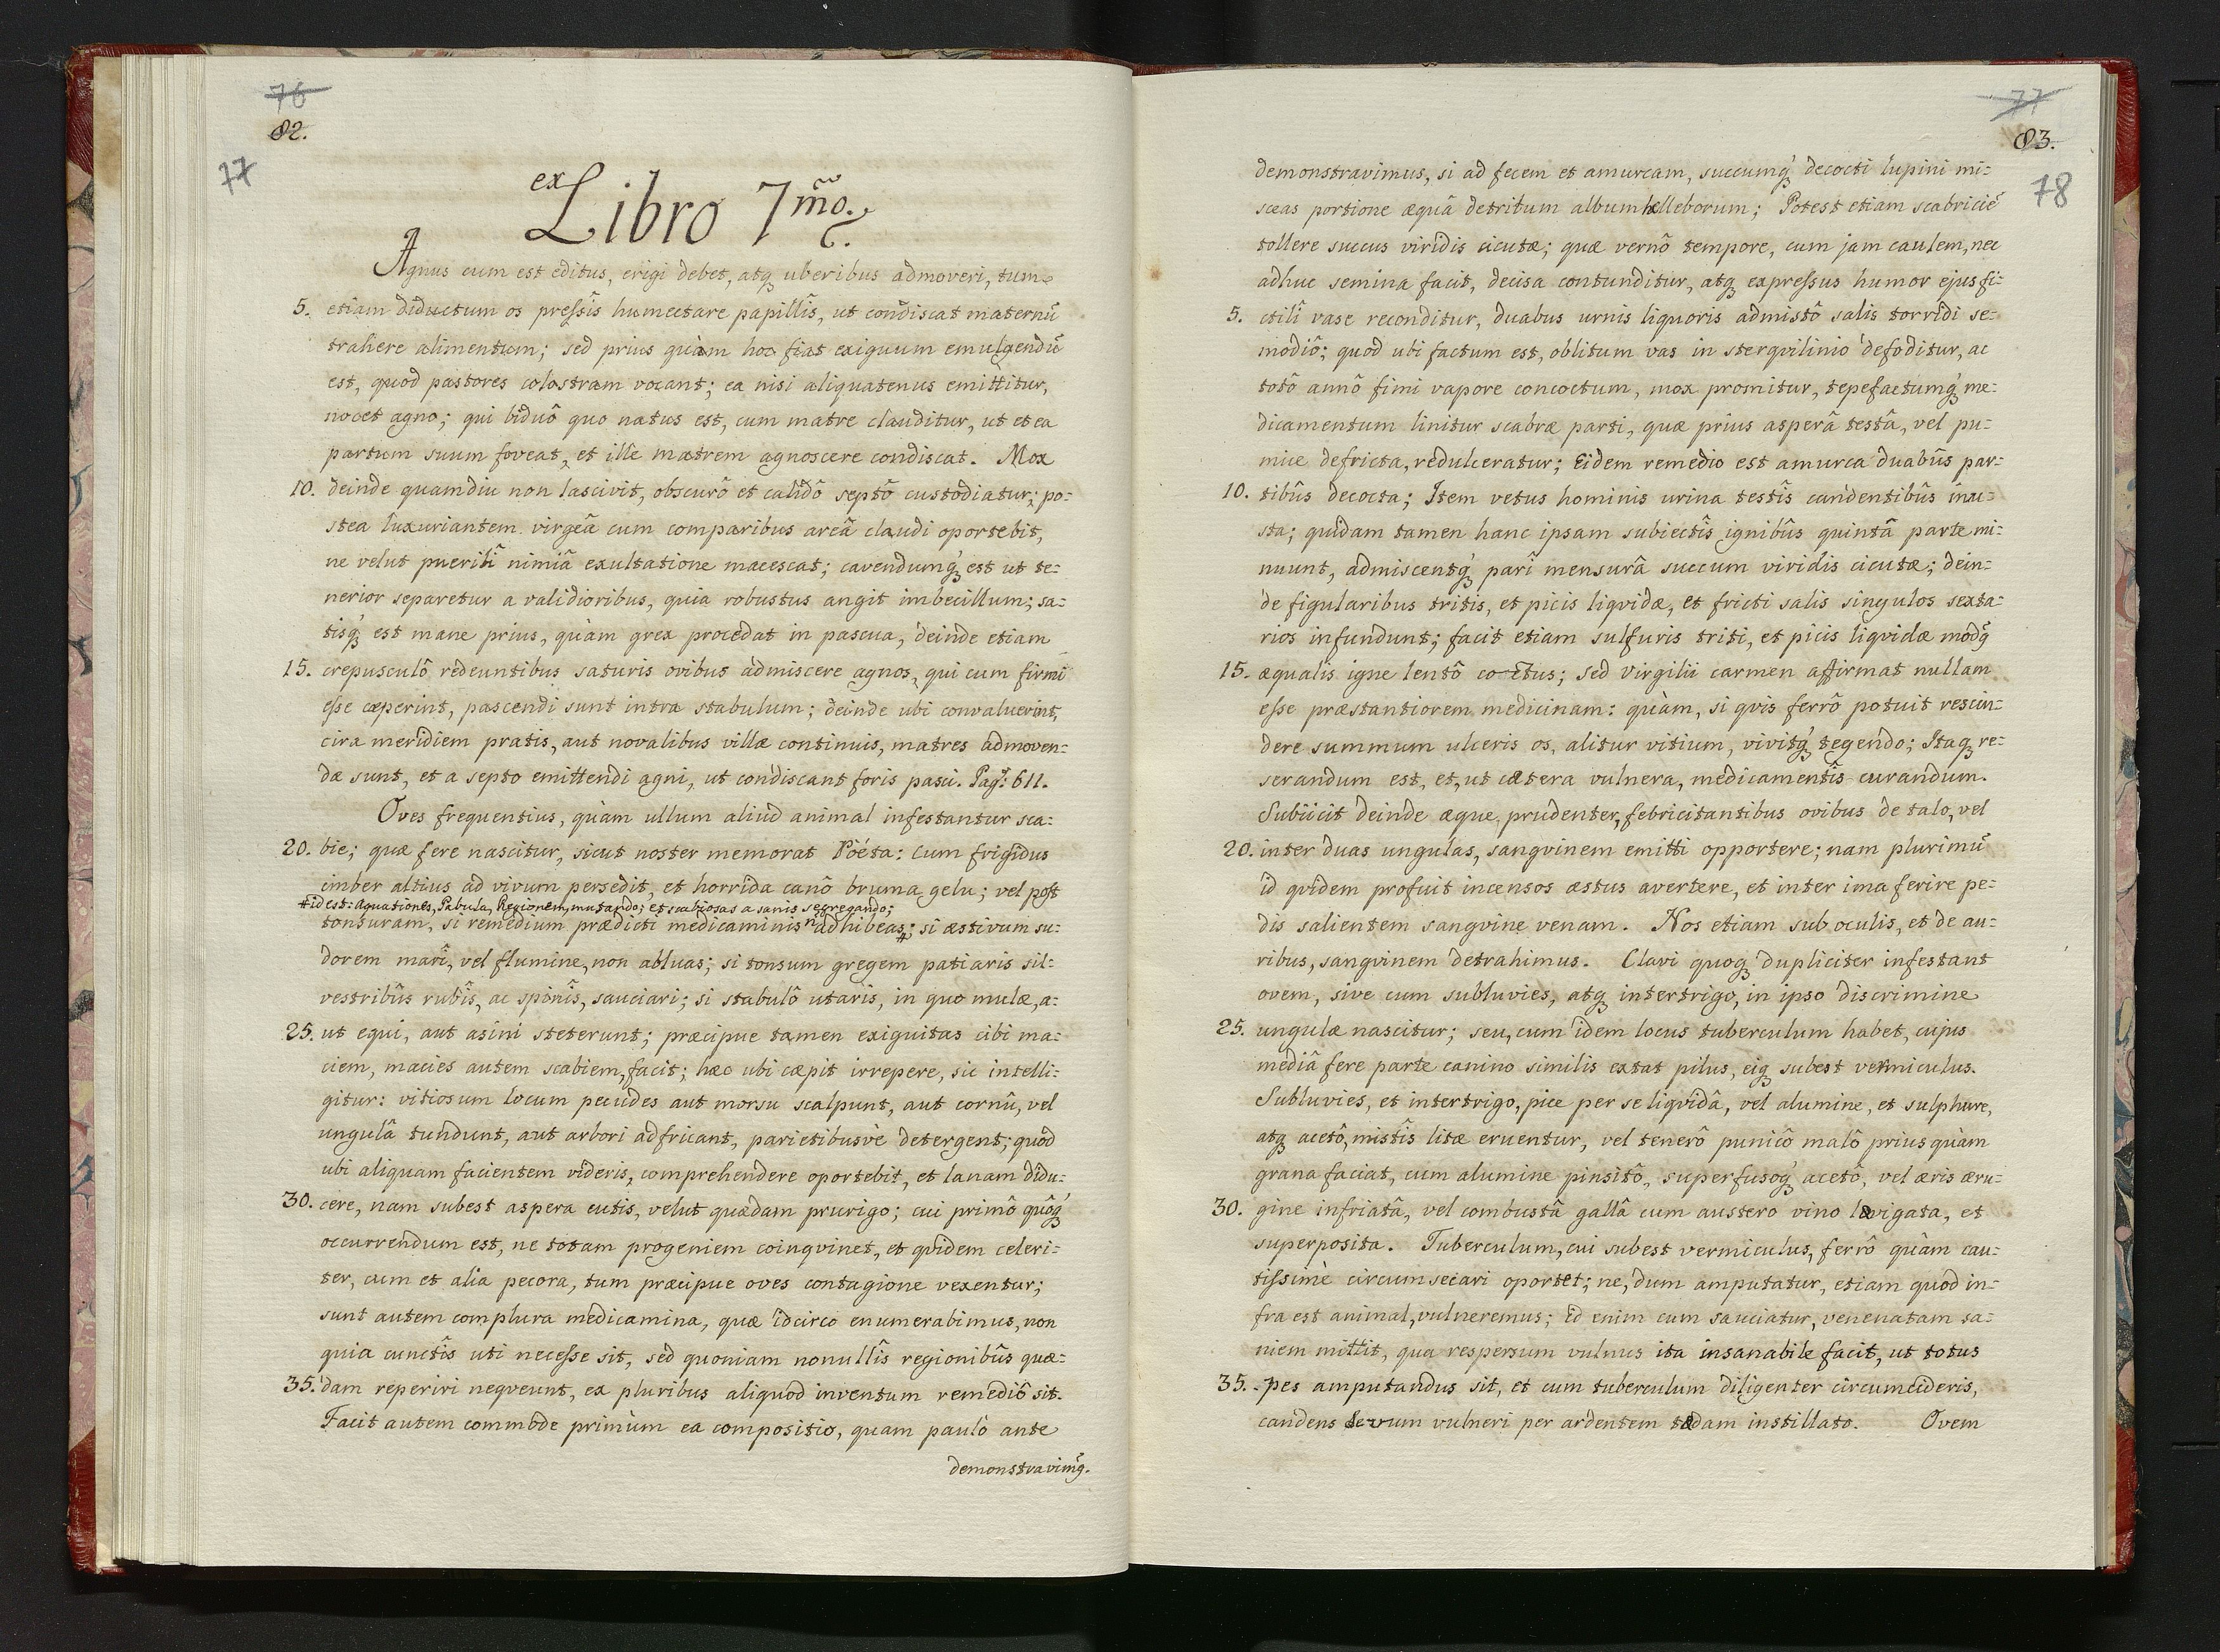 76
82.
77
ex Libro 7mo.
Agnus cum est editus, erigi debet, atq uberibus admoveri, tum
5. etiam diductum os preſsîs humectare papillîs, ut condiscat maternū
trahere alimentum; sed prius quàm hoc fiat exiguum emulgendū
est, quod pastores colostram vocant; ea nisi aliquatenus emittitur,
nocet agno; qui biduô quo natus est, cum matre clauditur, ut et ea
partum suum foveat, et ille matrem agnoscere condiscat. Mox
10. deinde quamdiu non lascivit, obscurô et calidô septô custodiatur; po:
stea luxuriantem virgeâ cum comparibus areâ claudi oportebit,
ne velut puerilî nimiâ exultatione macescat; cavendumq́ est ut te:
nerior separetur a validioribus, quia robustus angit imbecillum; sa:
tisq́ est mane prius, quàm grex procedat in pascua, deinde etiam
15. crepusculô redeuntibus saturis ovibus admiscere agnos, qui cum firmi
eſse cæperint, pascendi sunt intra stabulum; deinde ubi convaluerint,
cira meridiem pratis, aut novalibus villæ continuis, matres admoven:
dæ sunt, et a septo emittendi agni, ut condiscant foris pasci. Pag: 611.
Oves frequentius, quàm ullum aliud animal infestantur sca:
20. bie; quæ fere nascitur, sicut noster memorat Poéta: cum frigidus
imber altius ad vivum persedit, et horrida canô bruma gelu; vel post
# id est: Aquationes, Pabula, Regionem, mutando; et scabiosas a sanis segregando;
tonsuram, si remedium prædicti medicaminis n adhibeas #; si æstivum su:
dorem marî, vel flumine, non abluas; si tonsum gregem patiaris sil:
vestribûs rubîs, ac spinîs, sauciari; si stabulô utaris, in quo mulæ, a:
25. ut equi, aut asini steterunt; præcipue tamen exiguitas cibi ma:
ciem, macies autem scabiem, facit; hæc ubi cæpit irrepere, sic intelli:
gitur: vitiosum locum pecudes aut morsu scalpunt, aut cornû, vel
ungulâ tundunt, aut arbori adfricant, parietibusvè detergent; quod
ubi aliquam facientem videris, comprehendere oportebit, et lanam didu:
30. cere, nam subest aspera cutis, velut quædam prurigo; cui primô quôq́
occurrendum est, ne totam progeniem coinqvinet, et qvidem celeri:
ter, cum et alia pecora, tum præcipue oves contagione vexentur;
sunt autem complura medicamina, quæ idcirco enumerabimus, non
quia cunctîs uti neceſse sit, sed quoniam nonullîs regionibûs quæ:
35. dam reperiri neqveunt, ex pluribus aliquod inventum remediô sit.
Facit autem commode primùm ea compositio, quam paulò ante
demonstravimq̃.
77
83.
78
demonstravimus, si ad fecem et amurcam, succumq́ decocti lupini mi:
sceas portione æquâ detritum album helleborum; Potest etiam scabriciē
tollere succus viridis cicutæ; quæ vernô tempore, cum jam caulem, nec
adhuc semina facit, decisa contunditur, atq expreſsus humor ejus fi:
5. ctilî vase reconditur, duabus urnis liquoris admistô salis torridi se:
modiô; quod ubi factum est, oblitum vas in sterqvilinio defoditur, ac
totô annô fimi vapore concoctum, mox promitur, tepefactumq́ me:
dicamentum linitur scabræ parti, quæ prius asperâ testâ, vel pu:
mice defricta, redulceratur; Eidem remedio est amurca duabûs par:
10. tibûs decocta; Item vetus hominis urina testîs candentibûs inu:
sta; quidam tamen hanc ipsam subiectîs ignibûs quintâ parte mi:
nuunt, admiscentq́ parî mensurâ succum viridis cicutæ; dein:
de figularibus tritis, et picis liqvidæ, et fricti salis singulos sexta:
rios infundunt; facit etiam sulfuris triti, et picis liqvidæ modq̃
15. æqualis igne lentô coctus; sed Virgilii carmen affirmat nullam
eſse præstantiorem medicinam: quàm, si qvis ferrô potuit rescin:
dere summum ulceris os, alitur vitium, vivitq́ tegendo; Itaq re:
serandum est, et, ut cætera vulnera, medicamentîs curandum.
Subiicit deinde æque, prudenter, febricitantibus ovibus de talo, vel
20. inter duas ungulas, sangvinem emitti opportere; nam plurimū
id qvidem profuit incensos æstus avertere, et inter ima ferire pe:
dis salientem sangvine venam. Nos etiam sub oculis, et de au:
ribus, sangvinem detrahimus. Clavi quoq dupliciter infestant
ovem, sive cum subluvies, atq intertrigo, in ipso discrimine
25. ungulæ nascitur; seu, cum idem locus tuberculum habet, cujus
mediâ fere parte canino similis extat pilus, eiq subest vermiculus.
Subluvies, et intertrigo, pice per se liqvidâ, vel alumine, et sulphure,
atq acetô, mistîs litæ eruentur, vel tenerô punicô malô prius quàm
grana faciat, cum alumine pinsitô, superfusoq́ acetô, vel æris æru:
30. gine infriatâ, vel combustâ gallâ cum austero vino lævigata, et
superposita. Tuberculum, cui subest vermiculus, ferrô quàm cau:
tiſsimè circumsecari oportet; ne, dum amputatur, etiam quod in:
fra est animal, vulneremus; id enim cum sauciatur, venenatam sa:
niem mittit, qua respersum vulnus ita insanabile facit, ut totus
35. pes amputandus sit, et cum tuberculum diligenter circumcideris,
candens sevum vulneri per ardentem tædam instillato. Ovem